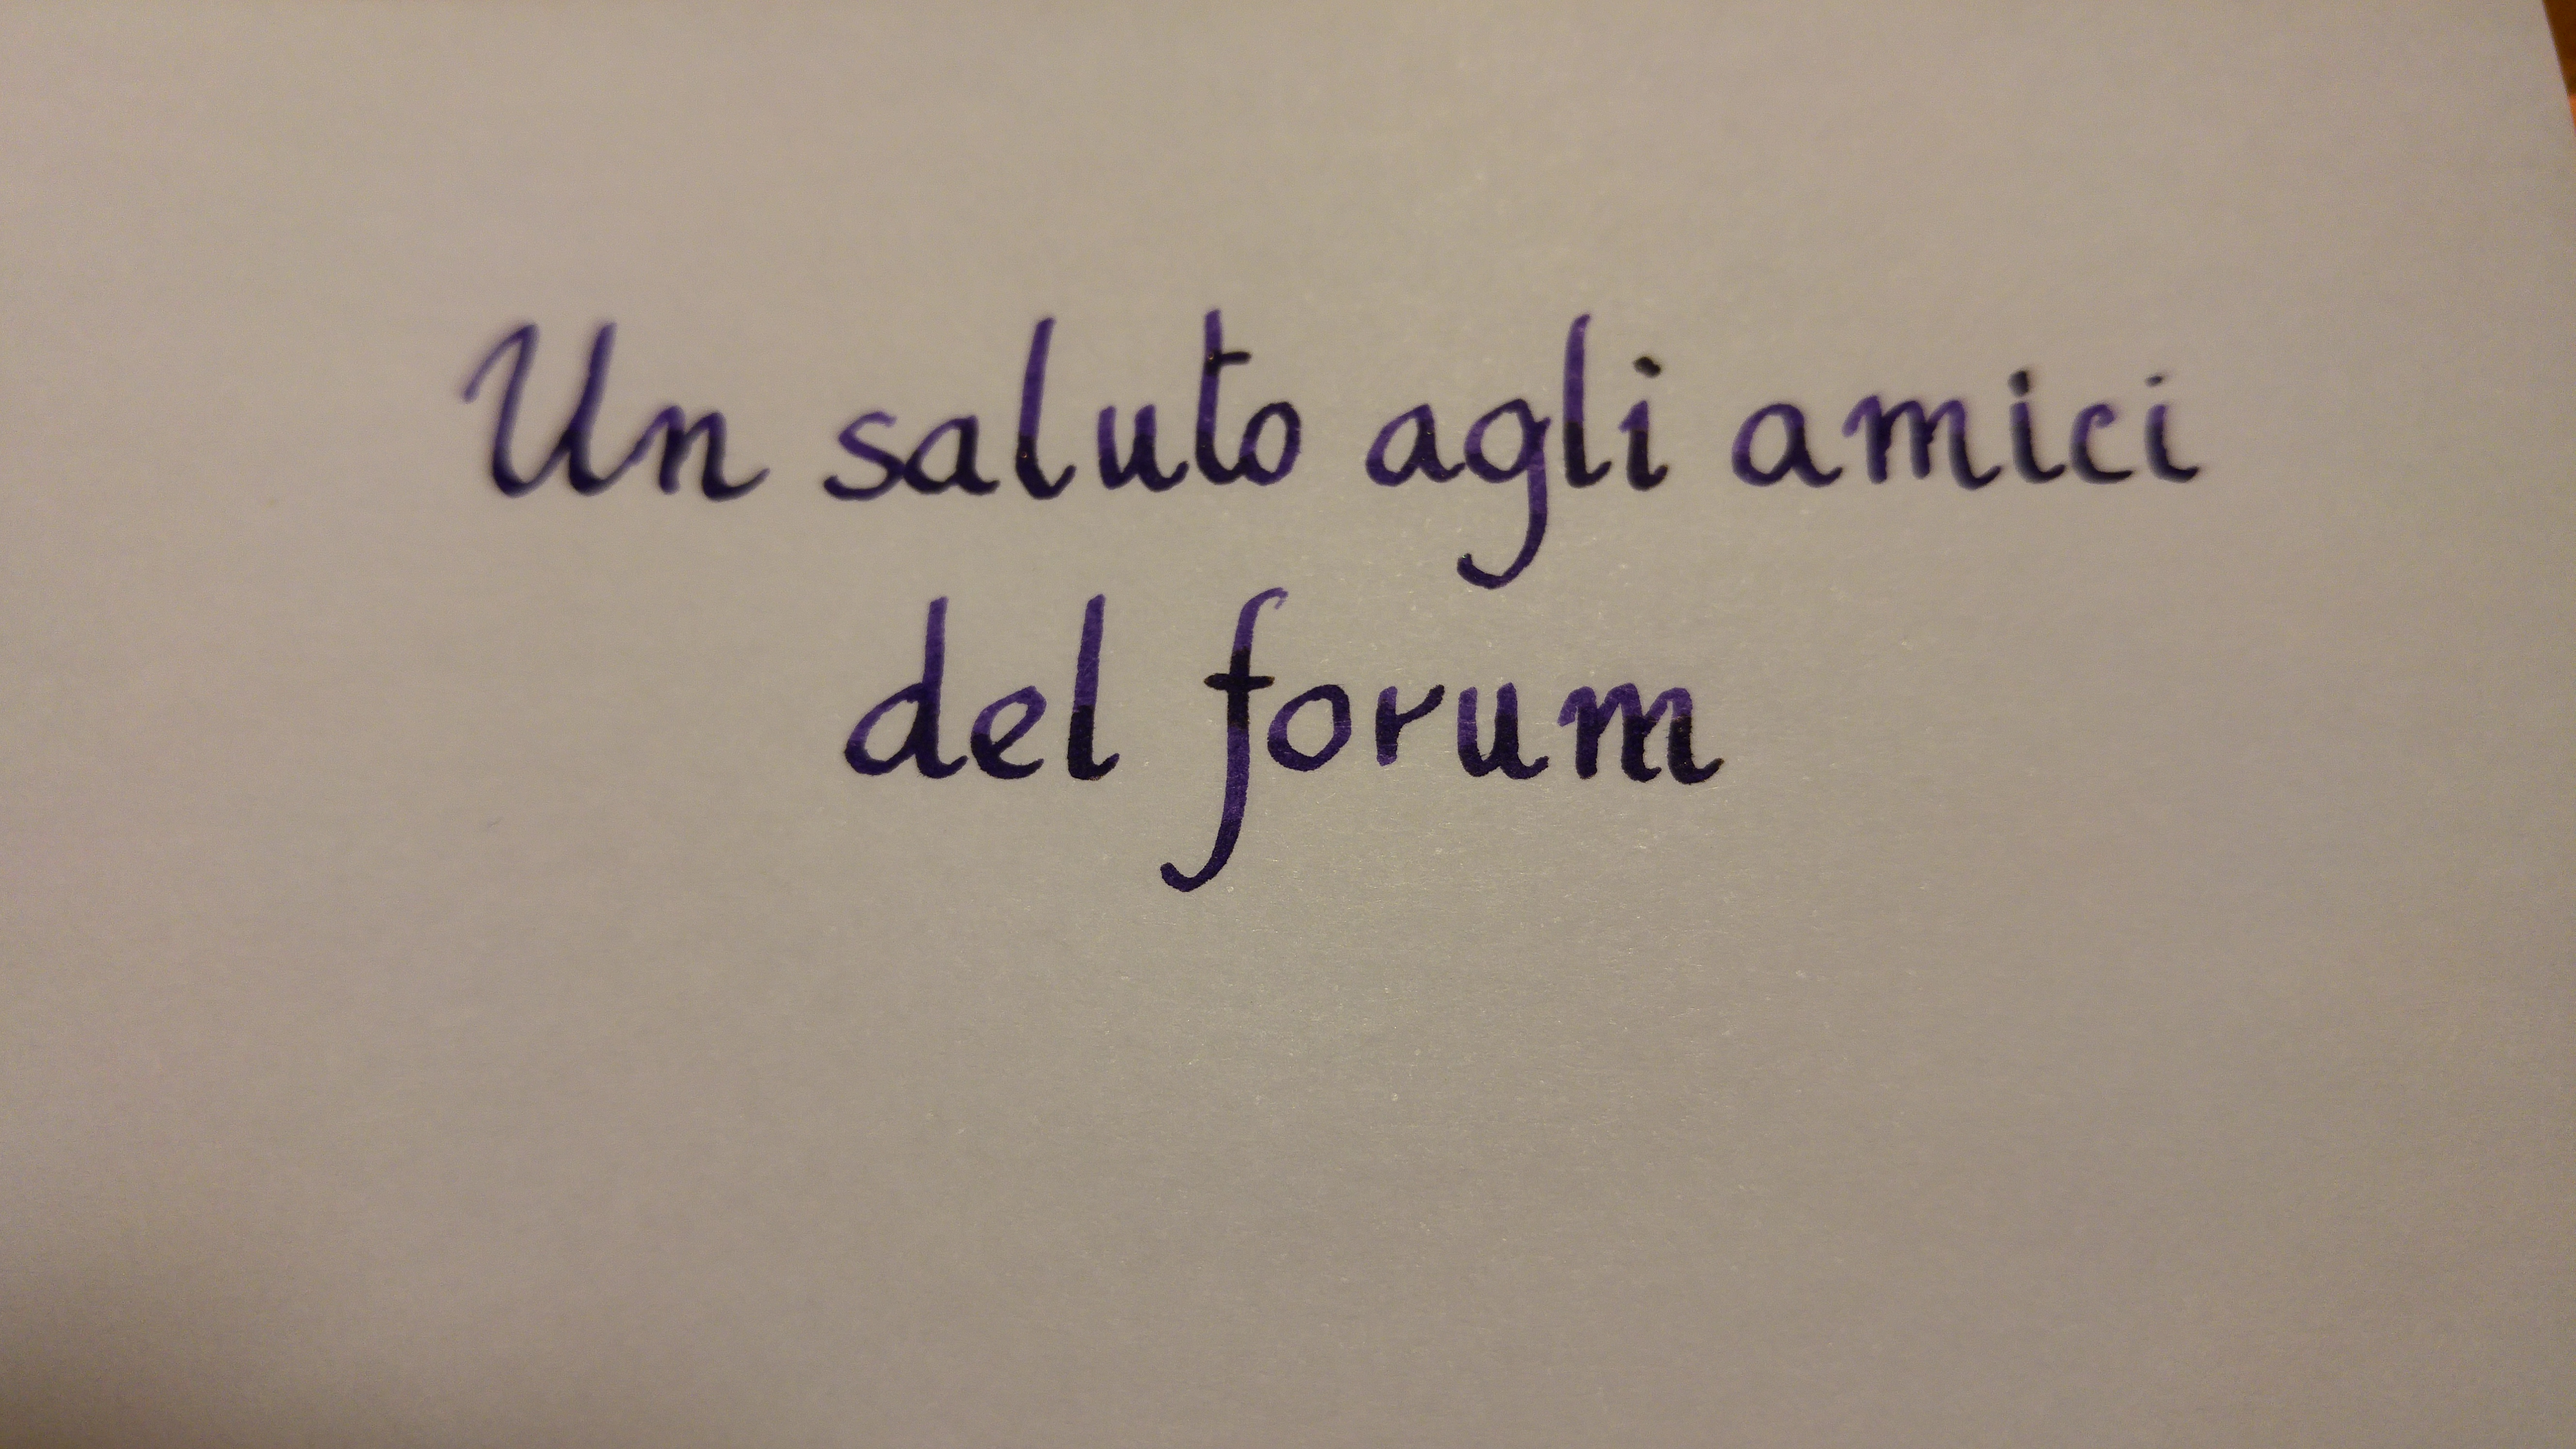 Un saluto agli amici
del forum